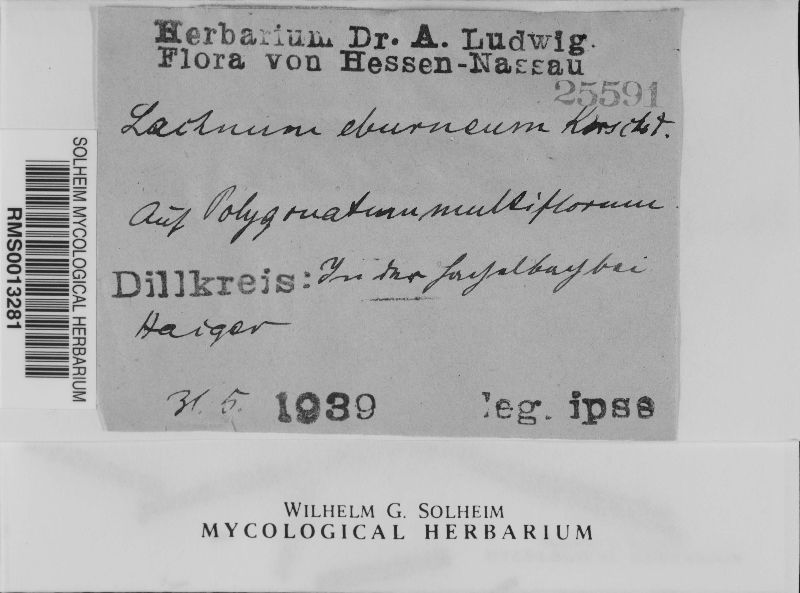 Herbarium Dr. A. Ludwig.
Flora von Hessen-Nassau
25591
Lachnum eburneum
Auf Polygonatum multiflorum
Dillkreis: In der bei
Haiger
31. 5. 1939 leg. ipse
SOLHEIM MYCOLOGICAL HERBARIUM
RMS0013281
WILHELM G. SOLHEIM
MYCOLOGICAL HERBARIUM